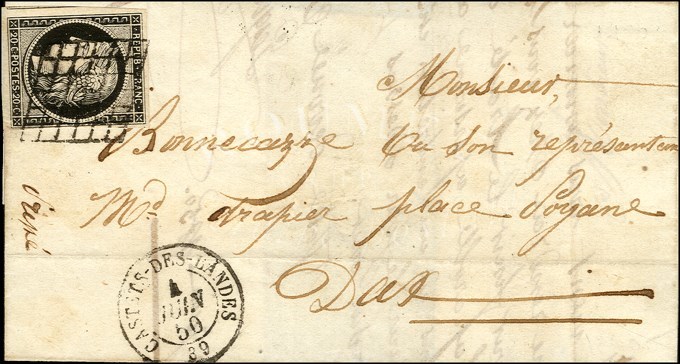 20.C.POSTES.20.C
REPUB.FRANC
Monsieur,
Bonnecazze Ou Son représentan
Md Drapier place Poyane
Dax
CASTETS-DES-LANDES
4
JUIN
50
39